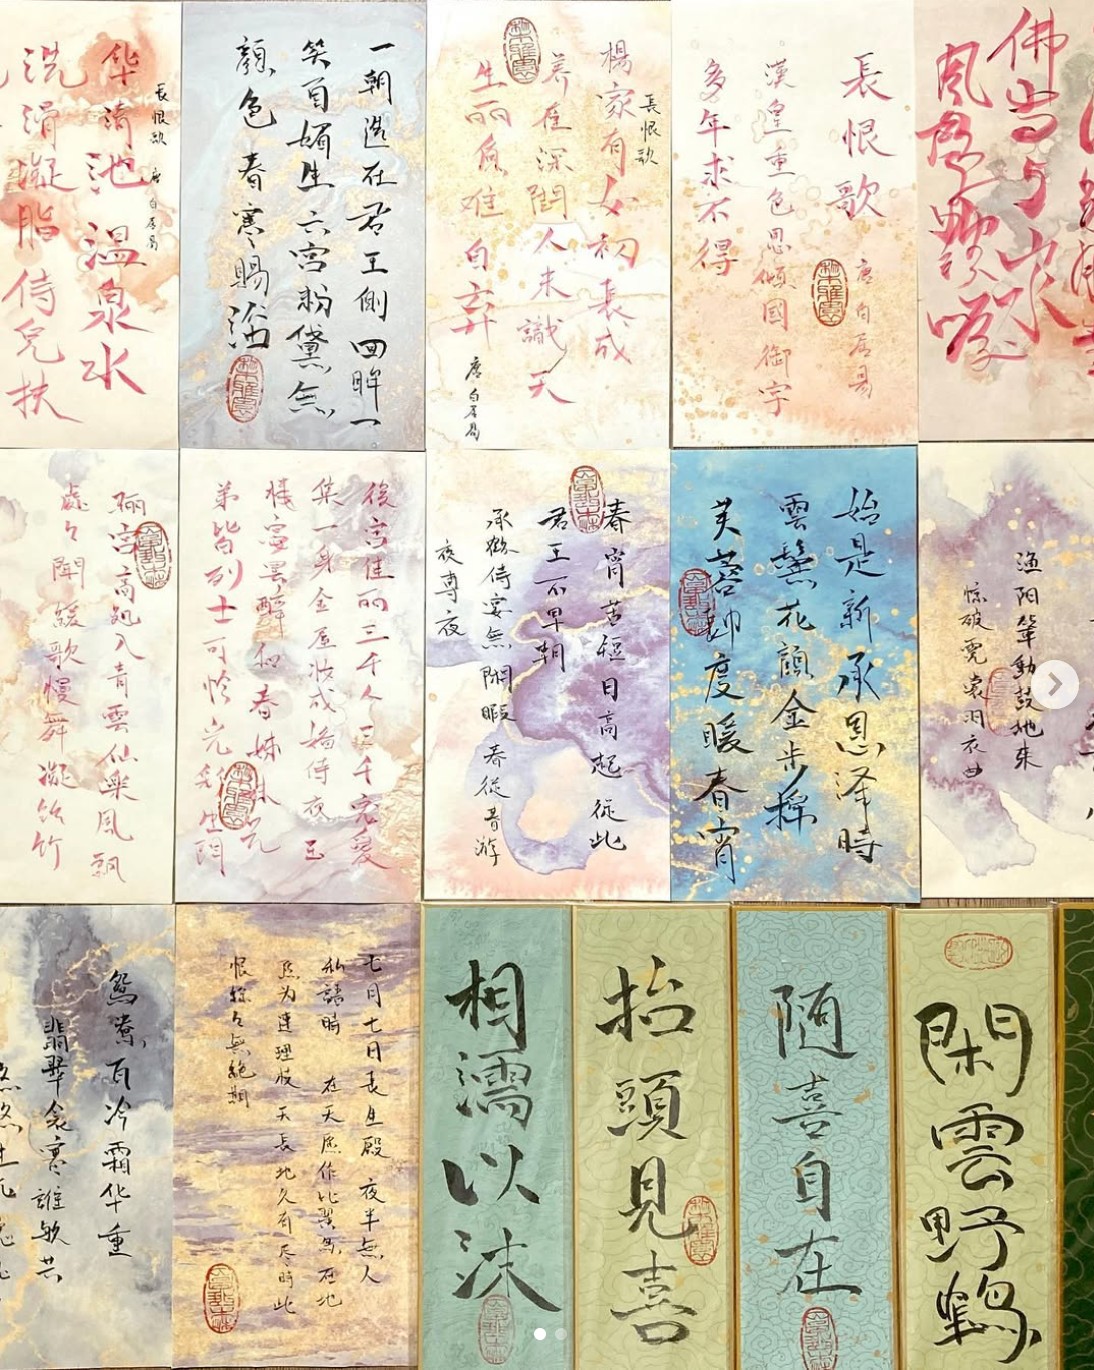 長恨歌
唐白居易
漢皇重色思倾國御宇
多年求不得
長恨歌
楊家有女初長成
养在深閨人未識天
生丽质难自弃
唐白居易
一朝选在君王側回眸一
笑百媚生六宫粉黛無
顏色春寒賜浴
長恨歌 唐白居易
华清池温泉水
洗滑凝脂侍兒扶
渔阳鼙動鼓地来
惊破霓裳羽衣曲
始是新承恩泽時
雲鬢花顔金步摇
芙蓉帐度暖春宵
春宵苦短日高起從此
君王不早朝
承歡侍宴無閑暇春從春游
夜專夜
後宫佳丽三千人三千宠爱
集一身金屋妆成娇侍夜玉
樓宴罢醉和春姊妹兄
弟皆列士可怜光彩生門
骊宫高処入青雲仙樂風飄
處々聞缓歌慢舞凝絲竹
閑雲野鶴
随喜自在
抬頭見喜
相濡以沫
七月七日長生殿夜半無人
私語時 在天愿作比翼鸟在地
愿为連理枝天長地久有尽時此
恨綿々無絶期
鸳鸯瓦冷霜华重
翡翠衾寒誰與共